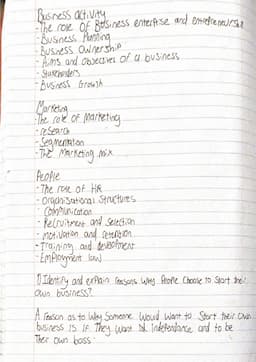 Business activity
- The role of Business enterprise and entrepreneurship
- Business Planning
- Business Ownership
- Aims and objectives of a business
- Stakeholders
- Business Growth
Marketing
- The role of Marketing
- research
- Segmentation
- The Marketing mix
People
- The role of HR
- Organisational Structures
- Communication
- Recruitment and Selection
- Motivation and retention
- Training and development
- Employment law
1) Identify and explain reasons why People Choose to Start their
own business?
A reason as to Why Someone Would Want to Start their own
business is if They want Independance and to be
Their own boss